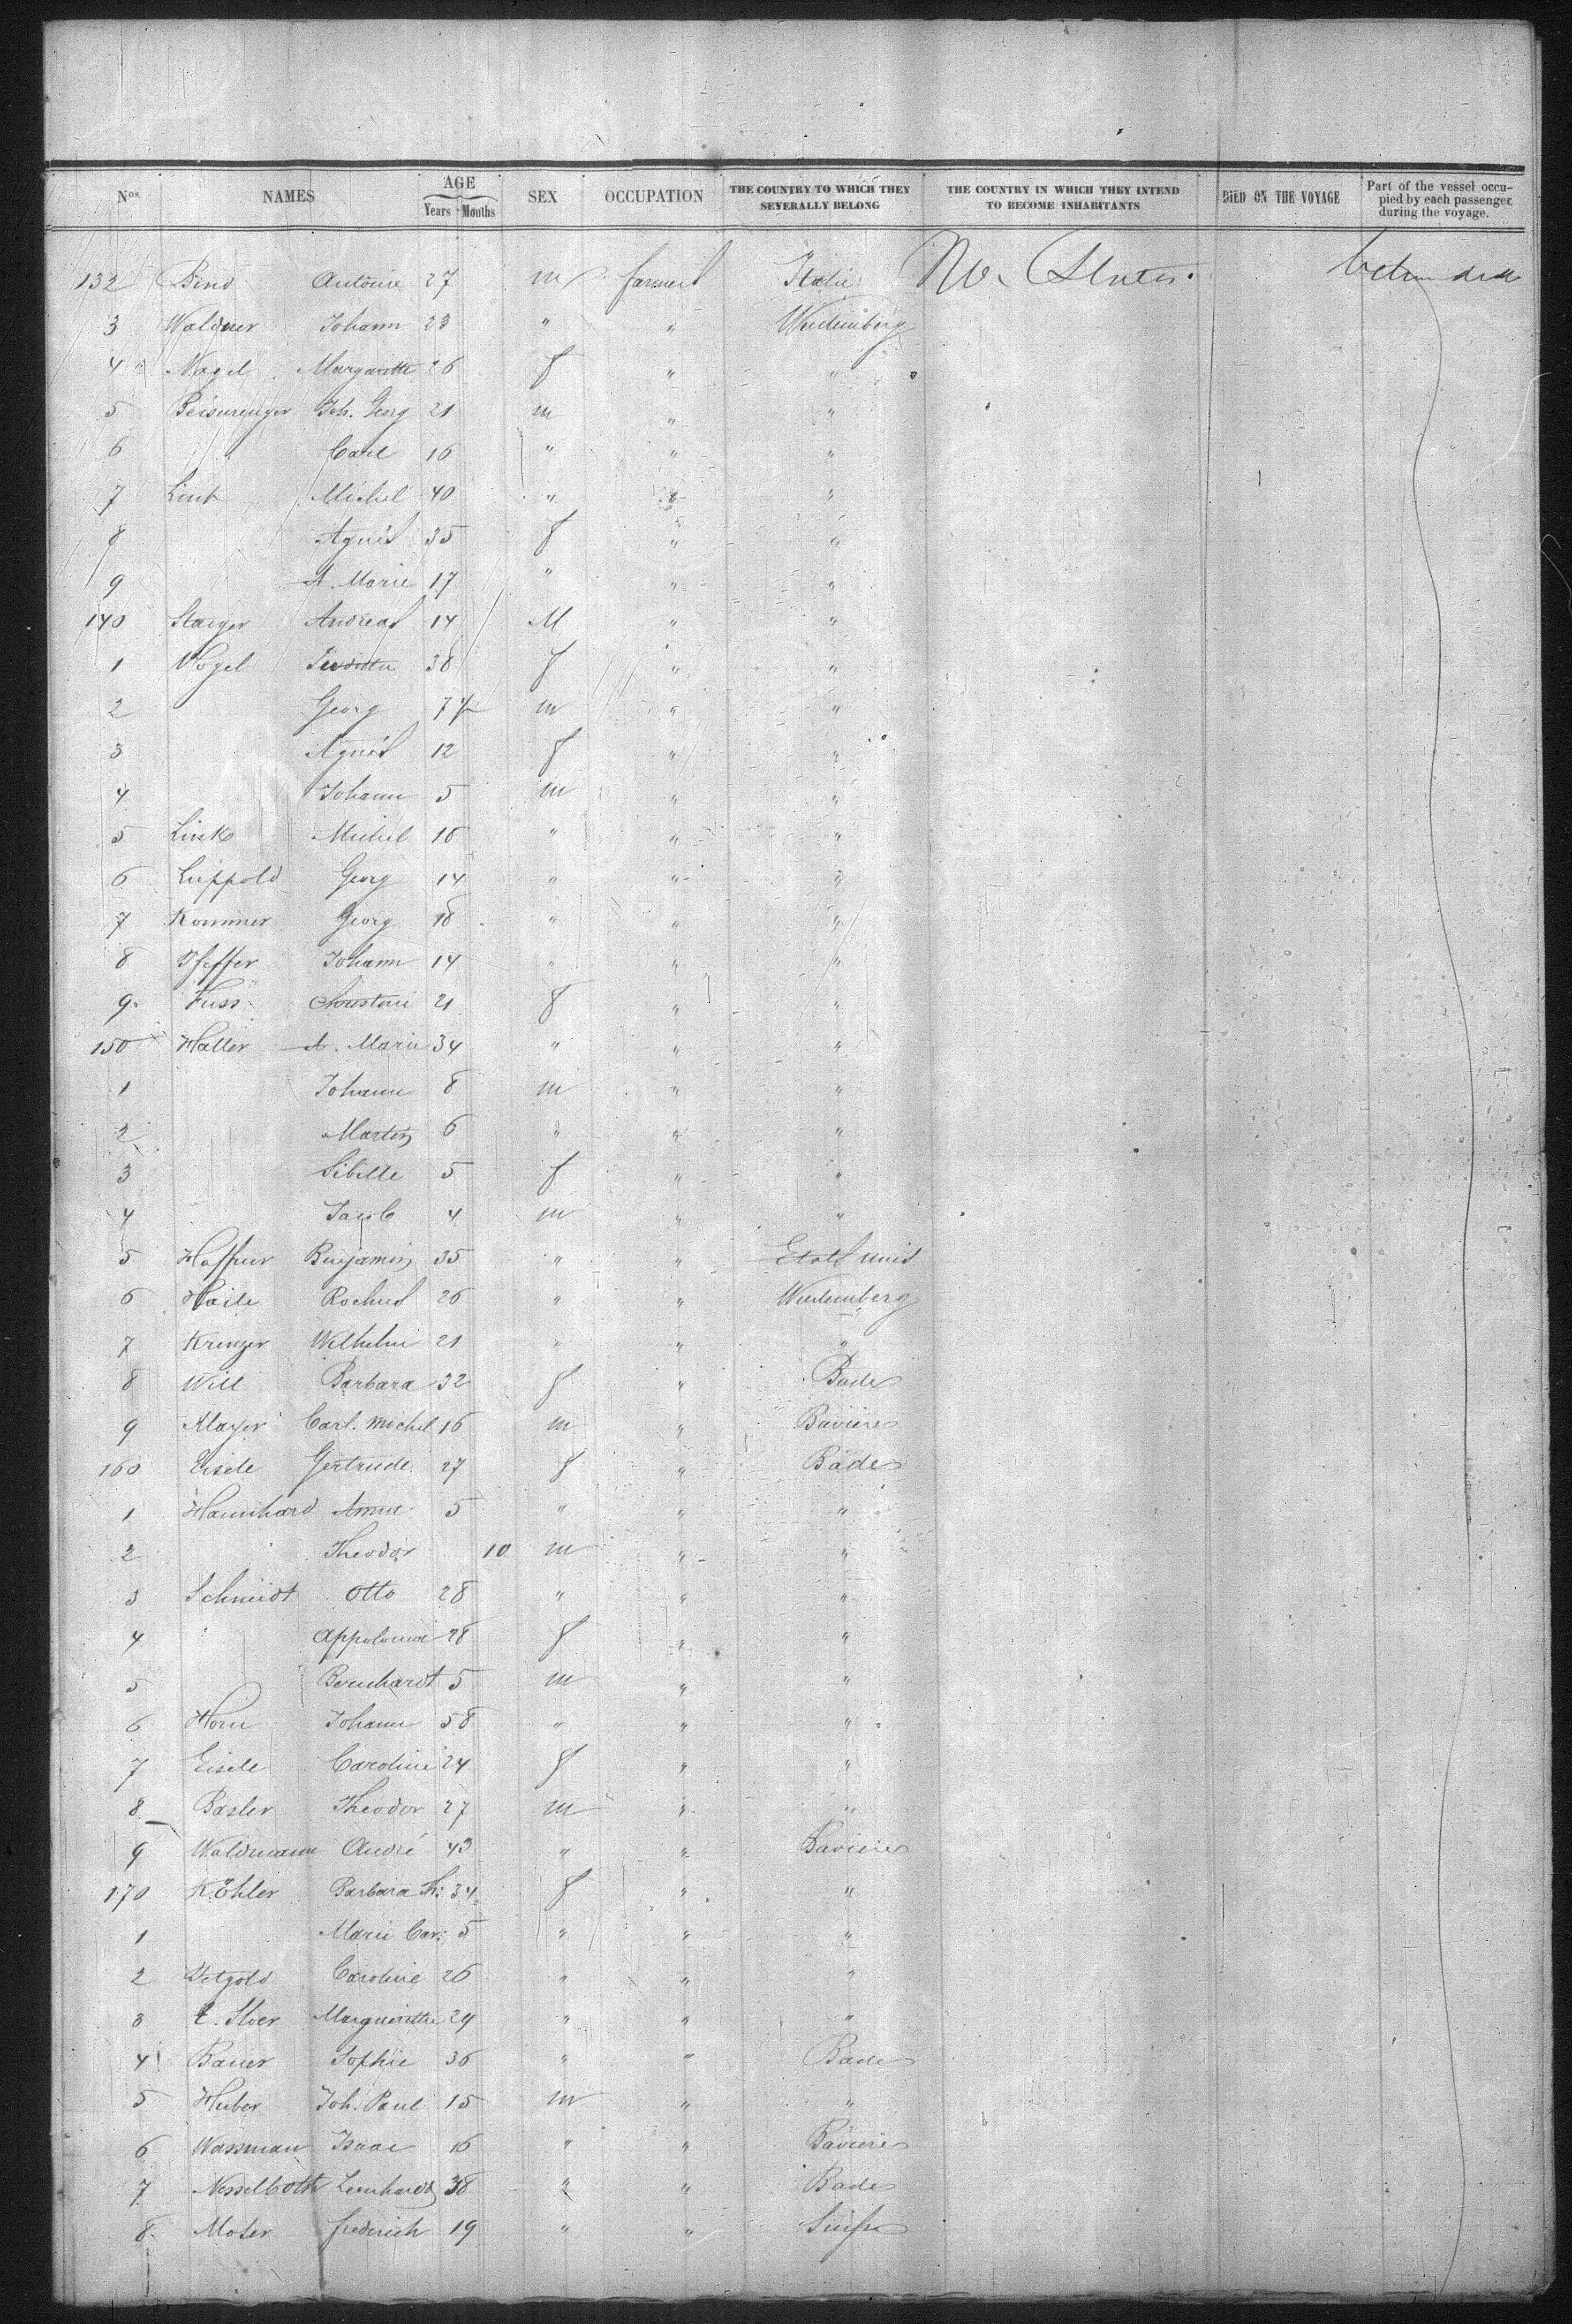 Nos NAMES AGE Years Months SEX OCCUPATION THE COUNTRY TO WHICH THEY SEVERALLY BELONG THE COUNTRY IN WHICH THEY INTEND TO BECOME INHABITANTS DIED ON THE VOYAGE Part of the vessel occupied by each passenger during the voyage.
132 Bino Antoine 27 m farmers Italie States
3 Waldner Johann 23 " " Wurtemberg
4 Nagel Margarethe 26 f " "
5 Joh. Georg 21 m " "
6 Carl 16 " " "
7 Link Michel 40 " " "
8 Agnes 35 f " "
9 A. Marie 17 " " "
140 Staiger Andreas 14 M " "
1 Vogel 38 f " "
2 Georg 7 m " "
3 Agnes 12 f " "
4 Johann 5 m " "
5 Link Michel 16 " " "
6 Luppold Georg 14 " " "
7 Kommer Georg 18 " " "
8 Pfeffer Johann 14 " " "
9 Fuss 21 f " "
150 Haller A. Marie 34 " " "
1 Johann 8 m " "
2 Martin 6 " " "
3 Sibille 5 f " "
4 Jacob 4 m " "
5 Haffner Benjamin 35 " " Etats unis
6 Haile Rochus 26 " " Wurtemberg
7 Krenzer Wilhelm 21 " " "
8 Will Barbara 32 f " Bade
9 Mayer Carl. Michel 16 m " Baviere
160 Eisele Gertrude 27 f " Bade
1 Hannhard Anne 5 " " "
2 Theodor 10 m " "
3 Schmidt Otto 28 " " "
4 Appolonia 28 f " "
5 Bernhardt 5 m " "
6 Horn Johann 58 " " "
7 Eisele Caroline 24 f " "
8 Basler Theodor 27 m " "
9 Waldmann André 43 " " Baviere
170 Köhler Barbara Th: 34 f " "
1 Marie Car: 5 " " "
2 Petzold Caroline 26 " " "
3 Marguerithe 24 " " "
4 Bauer Sophie 36 " " Bade
5 Huber Joh. Paul 15 m " "
6 Wassman Isaac 16 " " Baviere
7 Leonhard 38 " " Bade
8 Moser frederich 19 " " Suisse